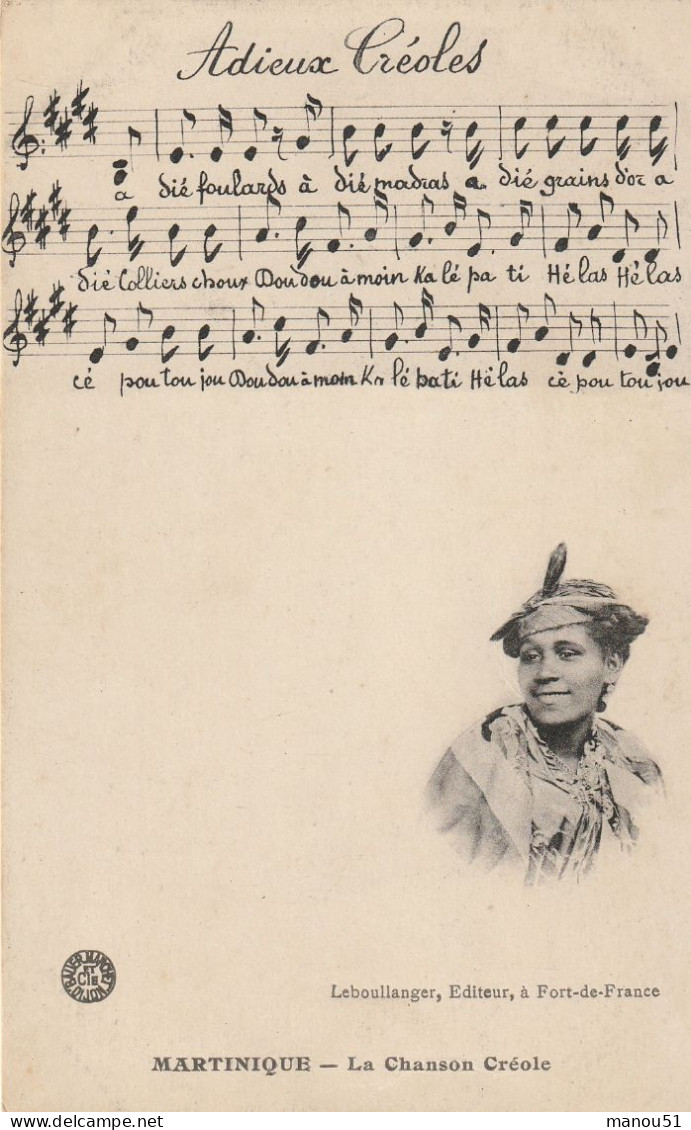 Adieux Créoles
a dié foulards à dié madras a dié grains d'or a
dié Colliers choux Doudou à moin Ka lé pa ti Hé las Hé las
cé pou tou jou Doudou à moin Ka lé pa ti Hé las cè pou tou jou
BAUER MARCHET
ET
CIE
DIJON
Leboullanger, Editeur, à Fort-de-France
MARTINIQUE — La Chanson Créole
manou51